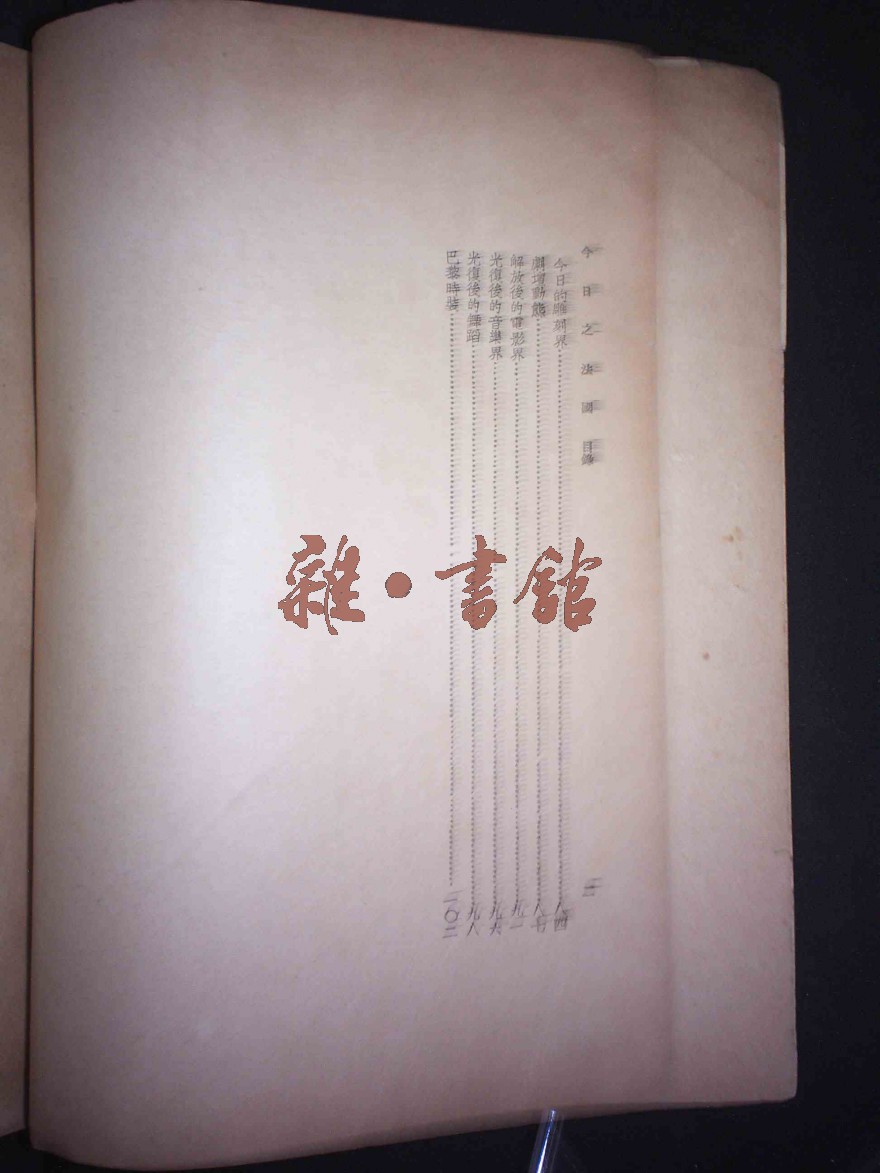 今日之法國 目錄
二
今日的雕刻界 八四
劇壇動態 八七
解放後的電影界 九一
光復後的音樂界 九六
光復後的舞蹈 九八
巴黎時裝 一〇二
雜·書館